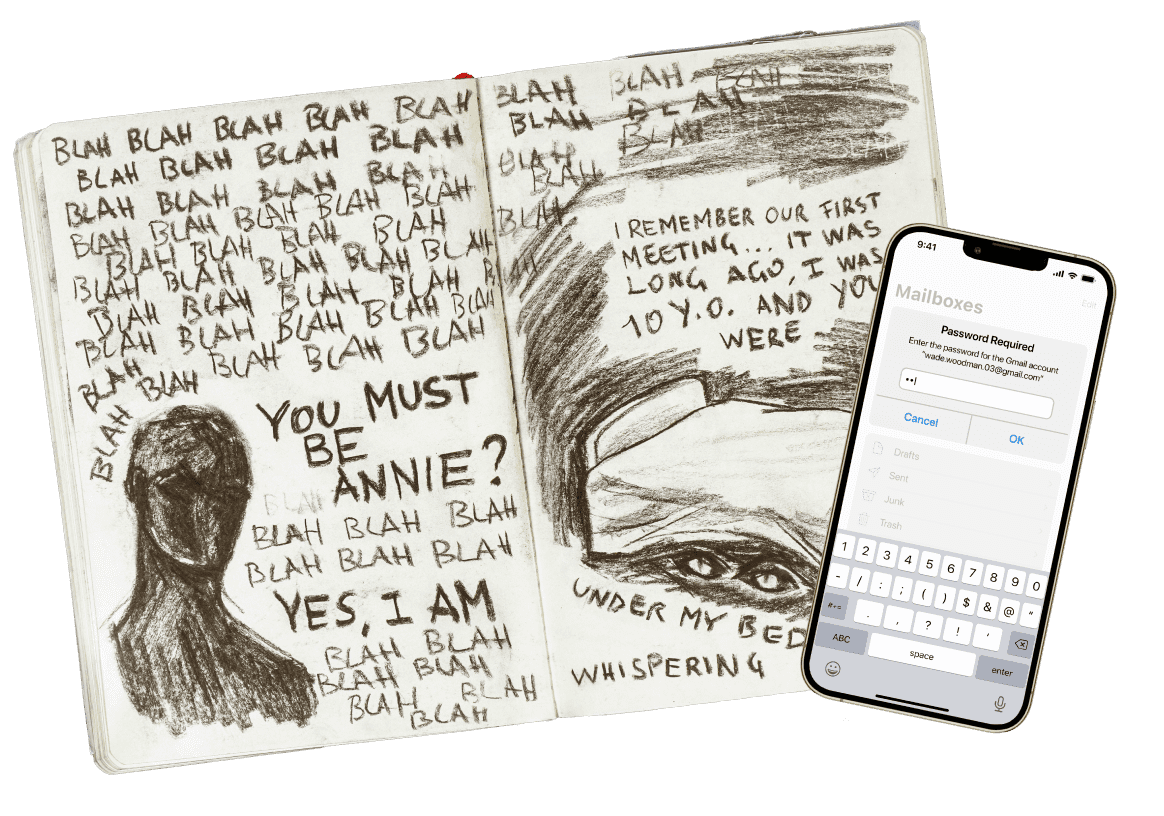 BLAH BLAH BLAH BLAH BLAH
BLAH BLAH BLAH BLAH
BLAH BLAH BLAH BLAH
BLAH BLAH BLAH BLAH BLAH
BLAH BLAH BLAH BLAH
BLAH BLAH BLAH BLAH BLAH
BLAH BLAH BLAH BLAH
BLAH BLAH BLAH BLAH BLAH
BLAH BLAH BLAH
BLAH BLAH
BLAH
YOU MUST
BE
ANNIE?
BLAH
BLAH BLAH BLAH
BLAH BLAH BLAH
YES, I AM
BLAH BLAH
BLAH BLAH
BLAH BLAH
BLAH
BLAH BLAH BLAH
BLAH BLAH
BLAH BLAH
BLAH
BLAH
I REMEMBER OUR FIRST
MEETING... IT WAS
LONG AGO, I WAS
10 Y.O. AND YOU
WERE
UNDER MY BED
WHISPERING
9:41
Edit
Mailboxes
Password Required
Enter the password for the Gmail account
"wade.woodman.03@gmail.com"
Cancel OK
Drafts
Sent
Junk
Trash
1 2 3 4 5 6 7 8 9 0
- / : ; ( ) $ & @ "
#+= . , ? ! '
ABC space enter